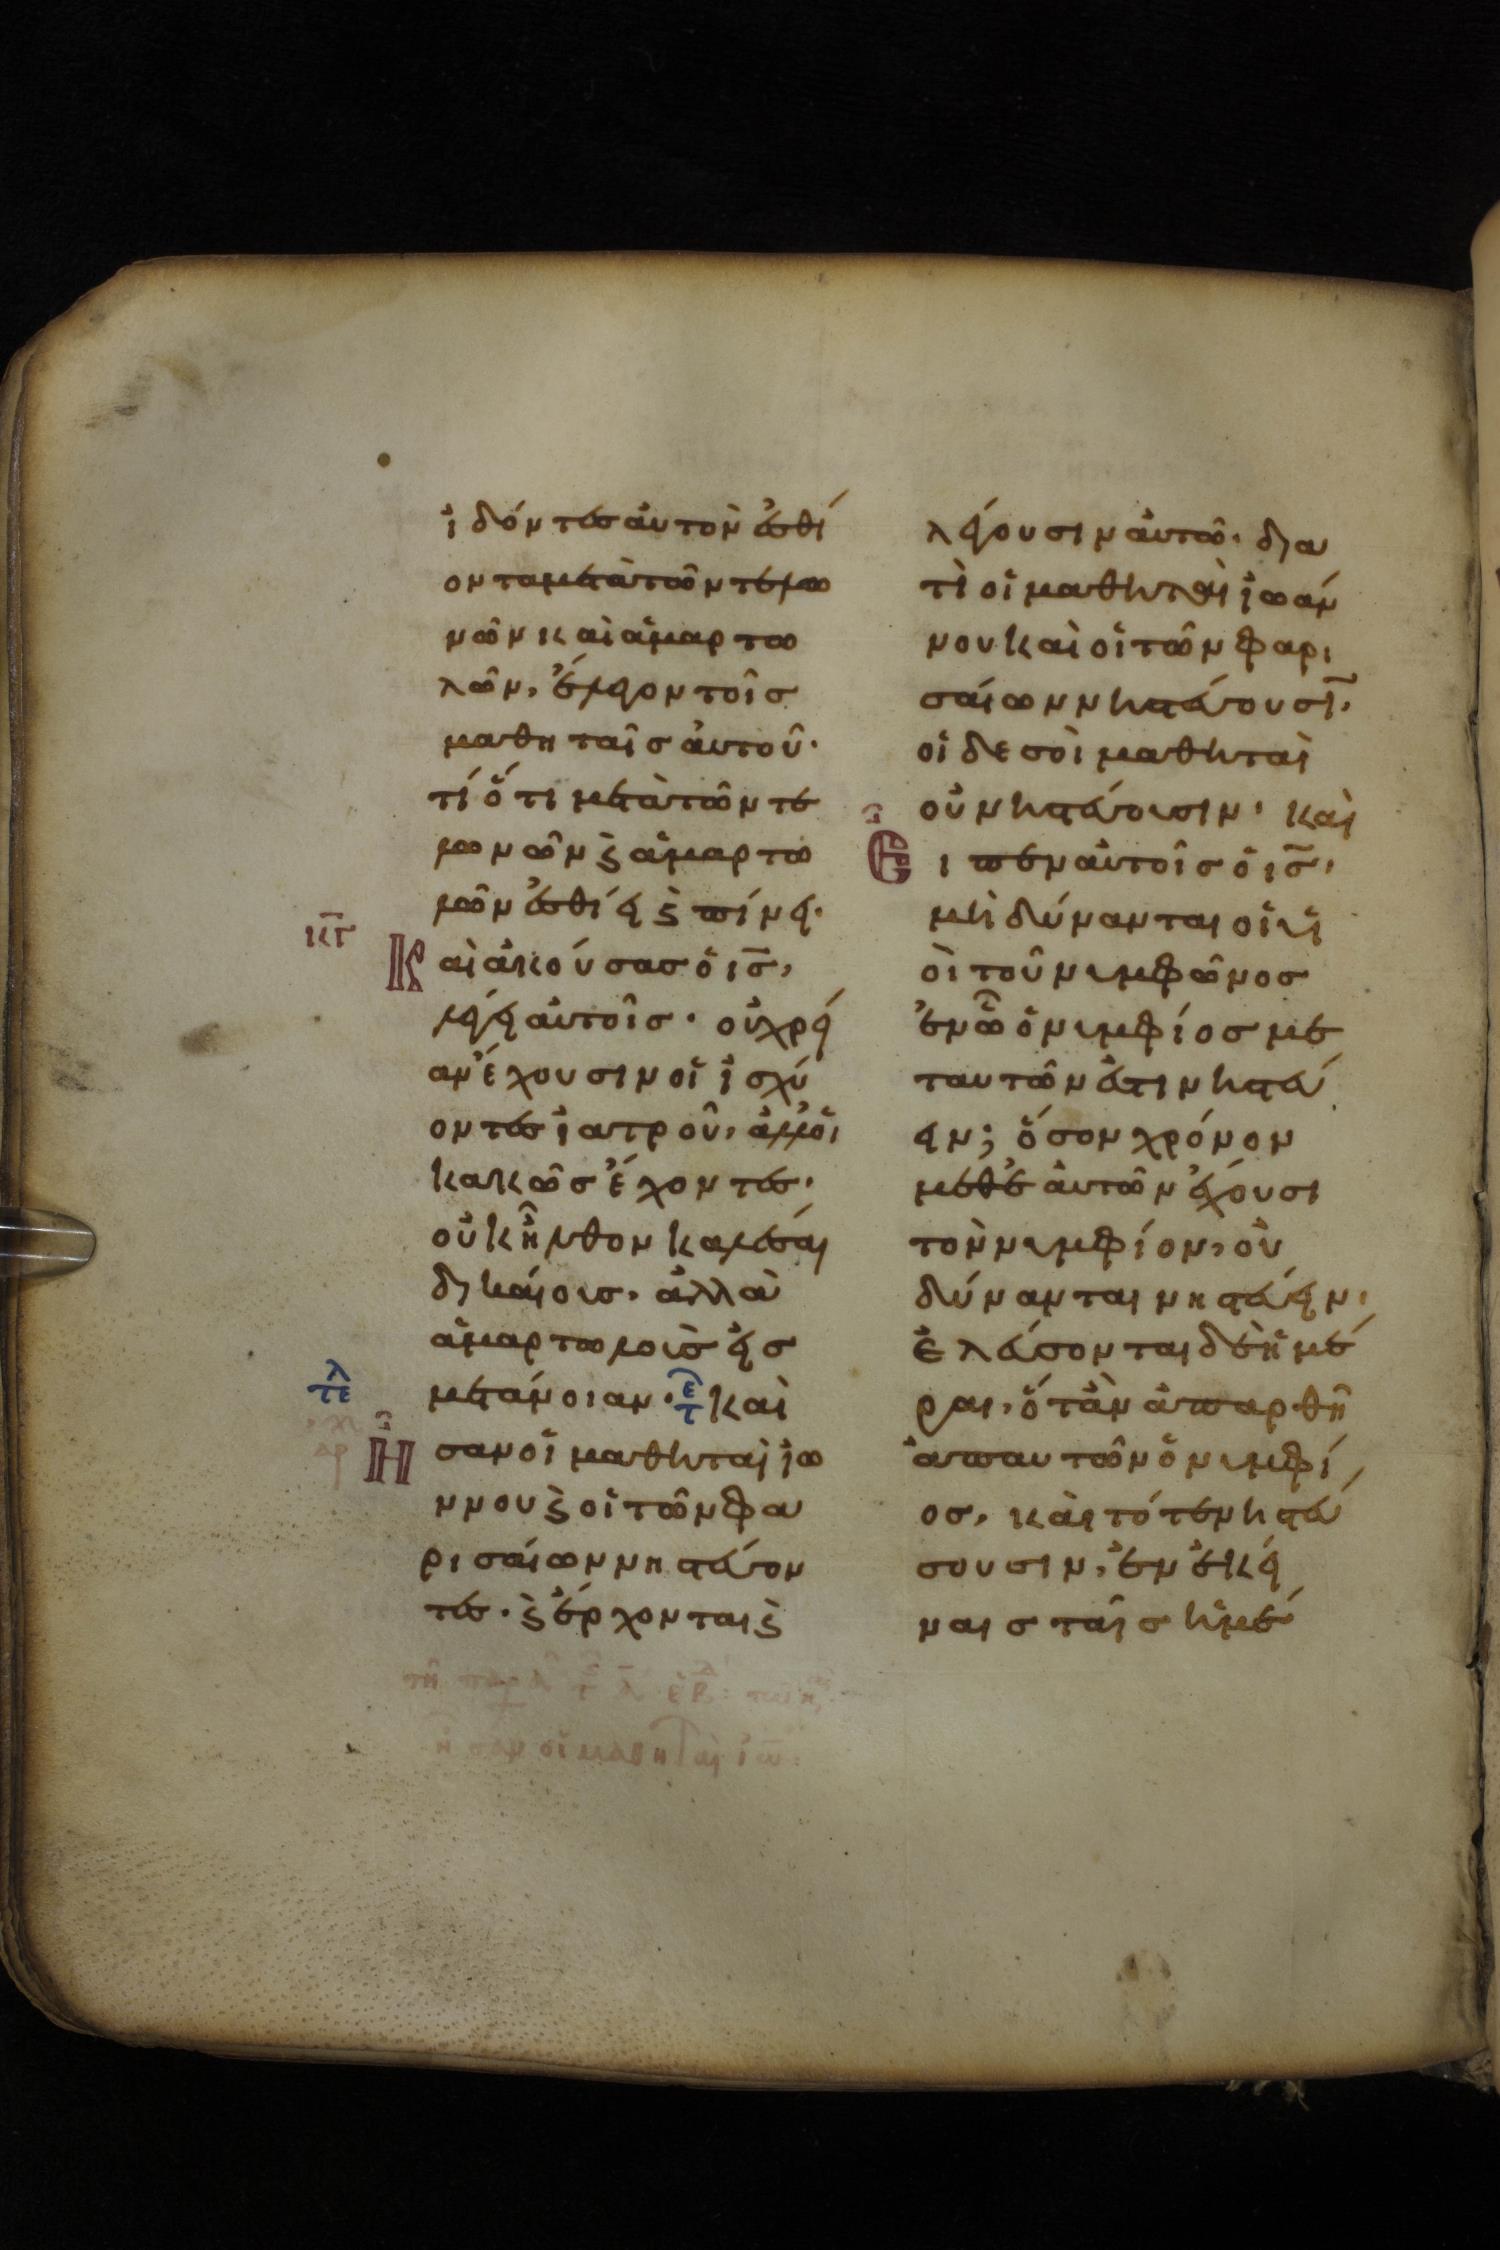 ἰδόντεσ αὐτὸν ἐσθί
οντα μετὰ τῶν τελω
νῶν καὶ ἁμαρτω
λῶν, ἔλεγον τοῖσ
μαθηταῖσ αὐτοῦ·
τί ὅτι μετὰ τῶν τε
λωνῶν ϗ ἁμαρτω
λῶν ἐσθίει ϗ πίνει·
κγ
Καὶ ἀκούσασ ὁ ισ,
λέγει αὐτοῖσ· οὐ χρεί
αν ἔχουσιν οἱ ἰσχύ
οντεσ ἰατροῦ, ἀλλ' οἱ
κακῶσ ἔχοντεσ·
οὐκ ἦλθον καλέσαι
δικαίουσ, ἀλλὰ
ἁμαρτωλοὺσ εἰσ
τε λ
μετάνοιαν· ετ Καὶ
Ἦσαν οἱ μαθηταὶ ἰω
ννου ϗ οἱ τῶν φα
ρισαίων νηστεύον
τεσ· ϗ ἔρχονται ϗ
ἦσαν οἱ μαθηταὶ ἰω:
λέγουσιν αὐτῶ· δια
τὶ οἱ μαθηταὶ ἰωάν
νου καὶ οἱ τῶν φαρι
σαίων νηστεύουσι,
οἱ δε σοὶ μαθηταὶ
οὐ νηστεύουσιν· καὶ
Εἶπεν αὐτοῖσ ὁ ισ,
μὴ δύνανται οἱ υἱ
οὶ τοῦ νυμφῶνοσ
ἐν ὧ ὁ νυμφίοσ με
τ αυτῶν ἐστι νηστεύ
ειν; ὅσον χρόνον
μεθ' ἑαυτῶν ἔχουσι
τὸν νυμφίον, οὐ
δύνανται νηστεύειν,
ἐλεύσονται δὲ ἡμέ
ραι, ὅταν ἀπαρθῆ
ἀπ αυτῶν ὁ νυμφί
οσ, καὶ τότε νηστεύ
σουσιν, ἐν ἐκεί
ναισ ταῖσ ἡμέ